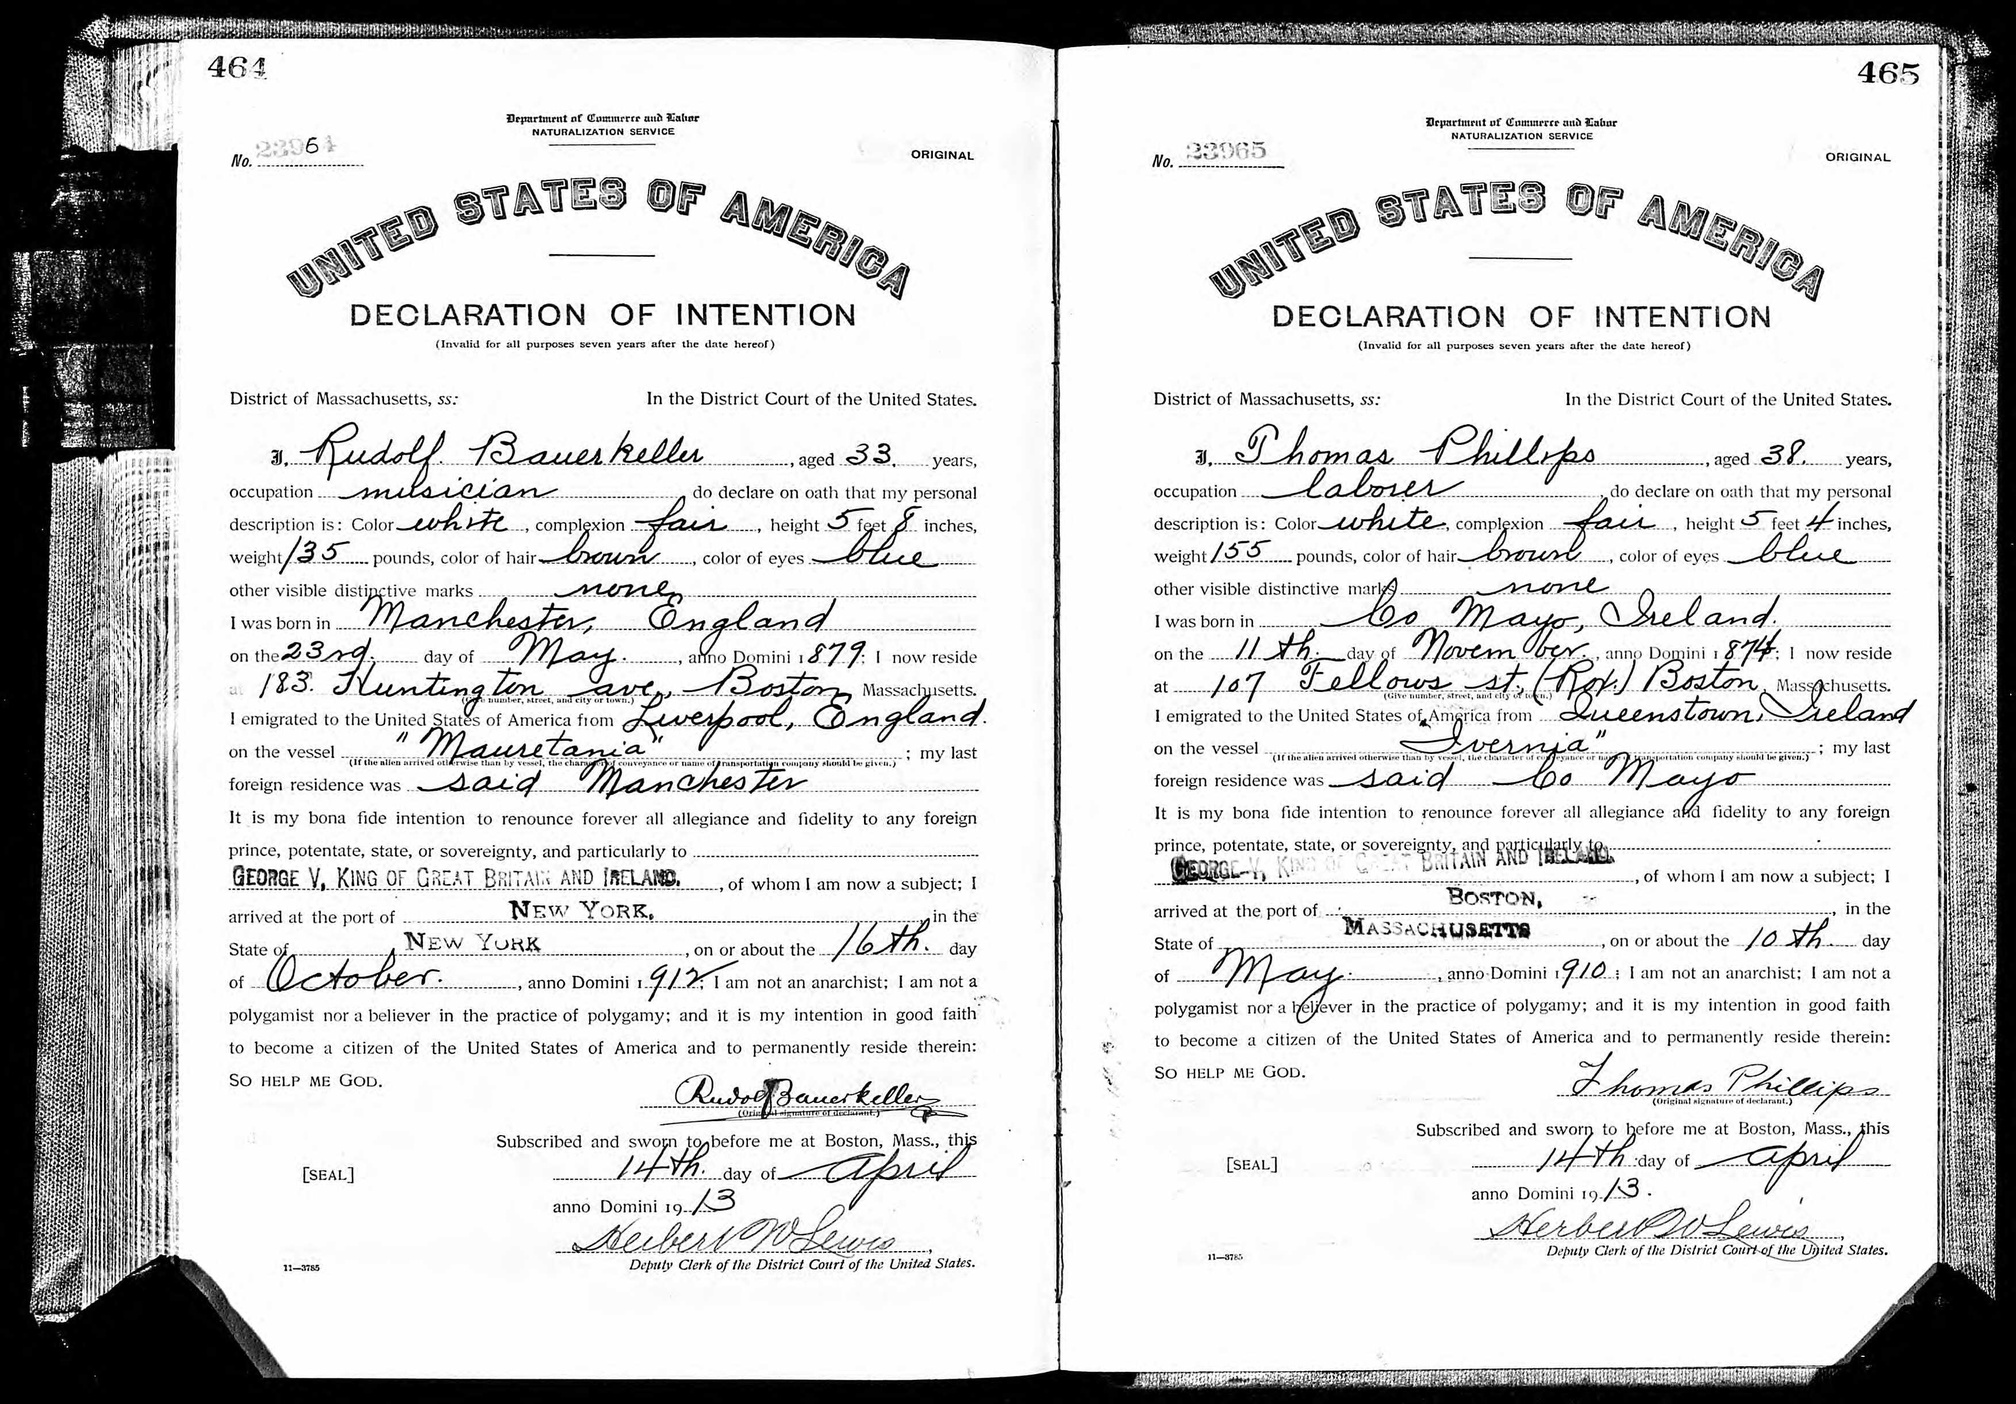 464
Department of Commerce and Labor
NATURALIZATION SERVICE
No. 23964
ORIGINAL
UNITED STATES OF AMERICA
DECLARATION OF INTENTION
(Invalid for all purposes seven years after the date hereof)
District of Massachusetts, ss: In the District Court of the United States.
I, Rudolf Bauerkeller, aged 33 years,
occupation musician, do declare on oath that my personal
description is: Color white, complexion fair, height 5 feet 8 inches,
weight 135 pounds, color of hair brown, color of eyes blue
other visible distinctive marks none
I was born in Manchester, England
on the 23rd. day of May., anno Domini 1879; I now reside
at 183. Huntington ave., Boston, Massachusetts.
(Give number, street, and city or town.)
I emigrated to the United States of America from Liverpool, England.
on the vessel "Mauretania"; my last
(If the alien arrived otherwise than by vessel, the character of conveyance or name of transportation company should be given.)
foreign residence was said Manchester
It is my bona fide intention to renounce forever all allegiance and fidelity to any foreign
prince, potentate, state, or sovereignty, and particularly to
GEORGE V, KING OF GREAT BRITAIN AND IRELAND, of whom I am now a subject; I
arrived at the port of NEW YORK, in the
State of NEW YORK, on or about the 16th. day
of October., anno Domini 1912; I am not an anarchist; I am not a
polygamist nor a believer in the practice of polygamy; and it is my intention in good faith
to become a citizen of the United States of America and to permanently reside therein:
SO HELP ME GOD.
Rudolf Bauerkeller
(Original signature of declarant.)
Subscribed and sworn to before me at Boston, Mass., this
[SEAL] 14th. day of April
anno Domini 1913
Herbert W Lewis,
11—3785 Deputy Clerk of the District Court of the United States.
465
Department of Commerce and Labor
NATURALIZATION SERVICE
No. 23965
ORIGINAL
UNITED STATES OF AMERICA
DECLARATION OF INTENTION
(Invalid for all purposes seven years after the date hereof)
District of Massachusetts, ss: In the District Court of the United States.
I, Thomas Phillips, aged 38. years,
occupation laborer, do declare on oath that my personal
description is: Color white, complexion fair, height 5 feet 4 inches,
weight 155 pounds, color of hair brown, color of eyes blue
other visible distinctive marks none
I was born in Co Mayo, Ireland.
on the 11th. day of November., anno Domini 1874; I now reside
at 107 Fellows st., (Rox.) Boston, Massachusetts.
(Give number, street, and city or town.)
I emigrated to the United States of America from Queenstown, Ireland
on the vessel "Ivernia"; my last
(If the alien arrived otherwise than by vessel, the character of conveyance or name of transportation company should be given.)
foreign residence was said Co Mayo
It is my bona fide intention to renounce forever all allegiance and fidelity to any foreign
prince, potentate, state, or sovereignty, and particularly to
GEORGE V, KING OF GREAT BRITAIN AND IRELAND, of whom I am now a subject; I
arrived at the port of BOSTON, in the
State of MASSACHUSETTS, on or about the 10th. day
of May., anno Domini 1910; I am not an anarchist; I am not a
polygamist nor a believer in the practice of polygamy; and it is my intention in good faith
to become a citizen of the United States of America and to permanently reside therein:
SO HELP ME GOD.
Thomas Phillips
(Original signature of declarant.)
Subscribed and sworn to before me at Boston, Mass., this
[SEAL] 14th day of April
anno Domini 1913.
Herbert W Lewis,
11—3785 Deputy Clerk of the District Court of the United States.